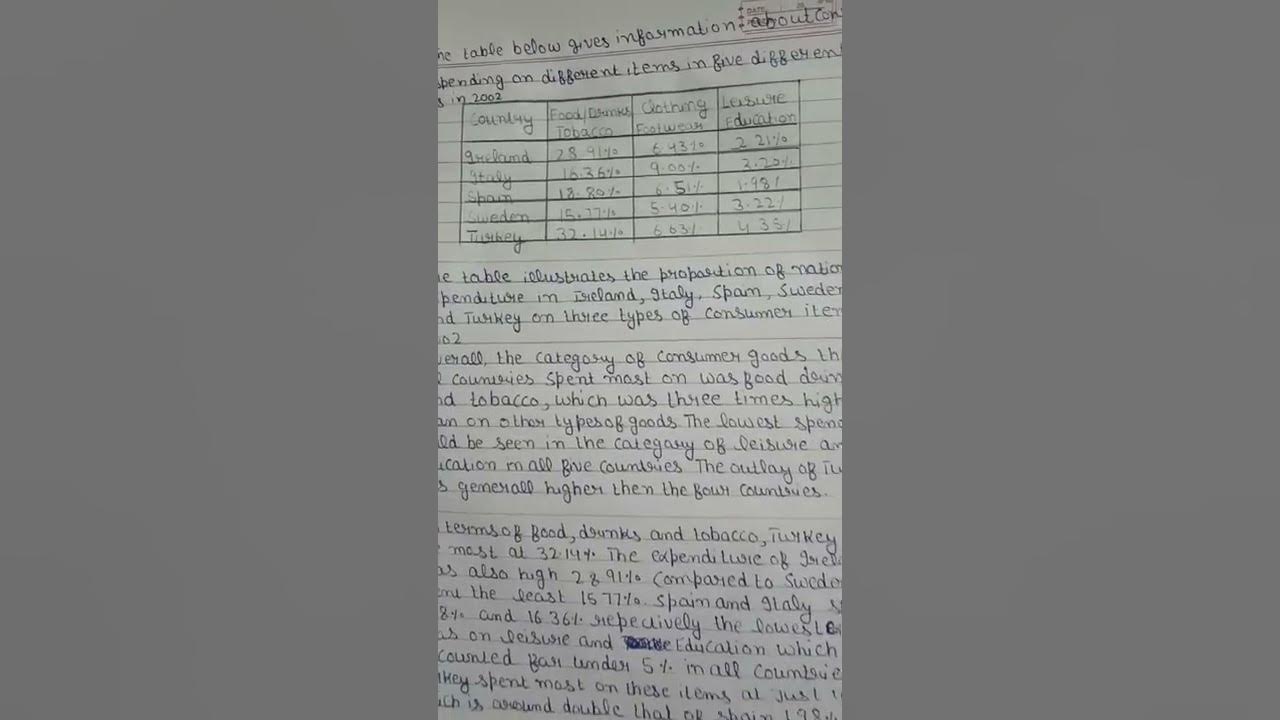 DATE
ne table below gives information about con
spending on different items in five differen
s in 2002
Country Food/Drinks Tobacco Clothing Footwear Leisure Education
Ireland 28.91% 6.43% 2.21%
Italy 16.36% 9.00% 3.20%
Spain 18.80% 6.51% 1.98%
Sweden 15.77% 5.40% 3.22%
Turkey 32.14% 6.63% 4.35%
e table illustrates the proportion of nation
penditure in Ireland, Italy, Spain, Sweden
nd Turkey on three types of consumer iten
02
verall, the category of consumer goods th
countries spent most on was food drin
nd tobacco, which was three times high
an on other types of goods The lowest spen
ld be seen in the category of leisure an
ucation in all five countries The outlay of Tu
s generall higher then the four countries.
terms of food, drinks and tobacco, Turkey
most at 32.14% The expenditure of Irel
as also high 28.91% compared to Swede
ent the least 15.77%. Spain and Italy s
8% and 16.36% repectively the lowest
as on leisure and Education which
counted far under 5% in all countrie
key spent most on these items at just
ich is around double that of spain 1.98%